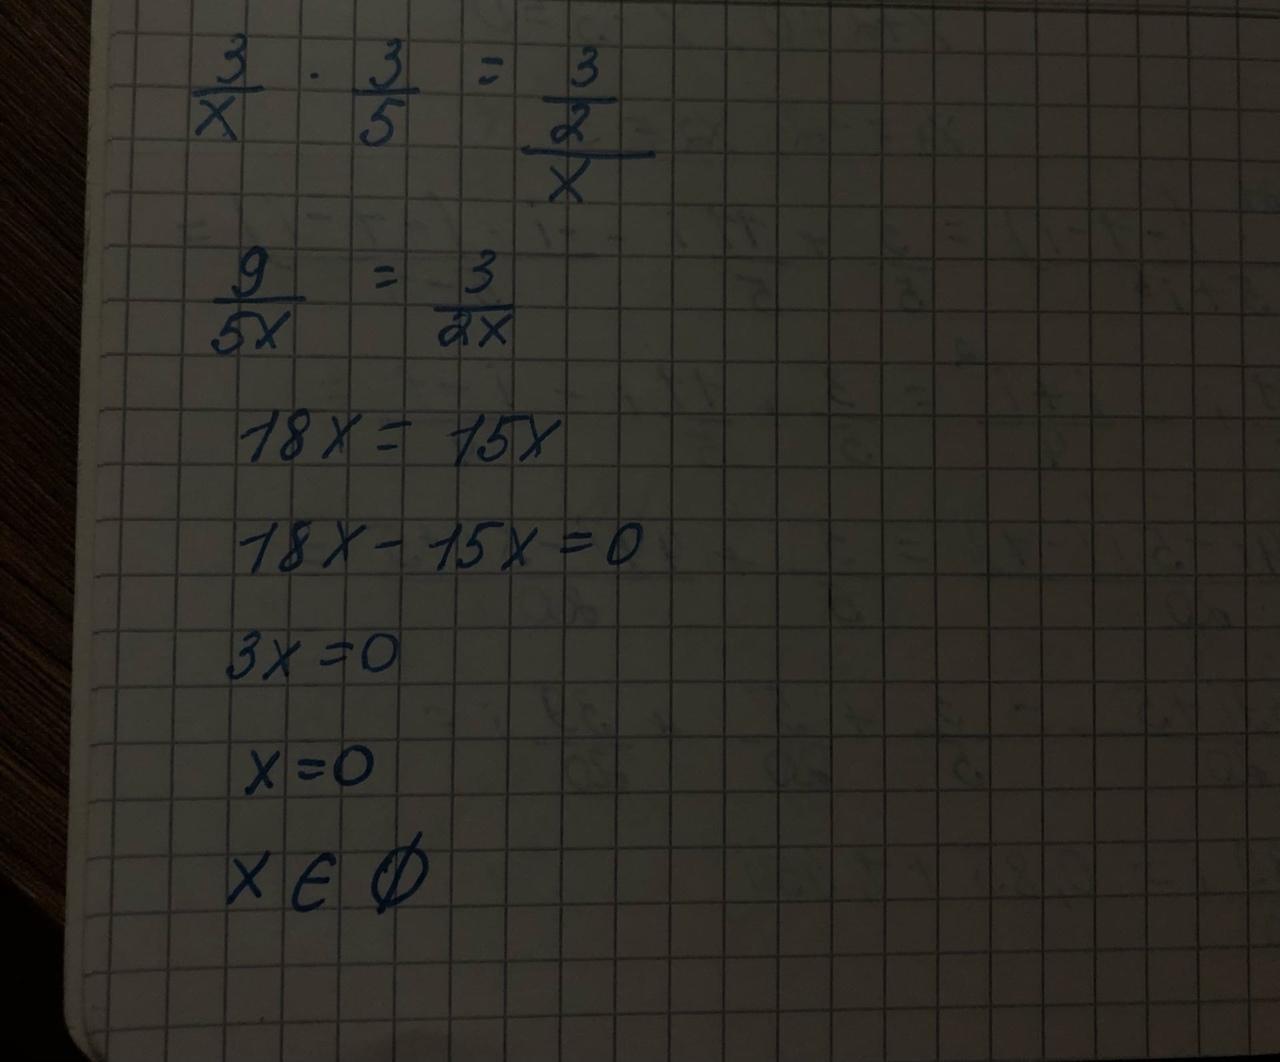 3/x · 3/5 = 3/2/x
9/5x = 3/2x
18x = 15x
18x - 15x = 0
3x = 0
x = 0
x ∈ ∅